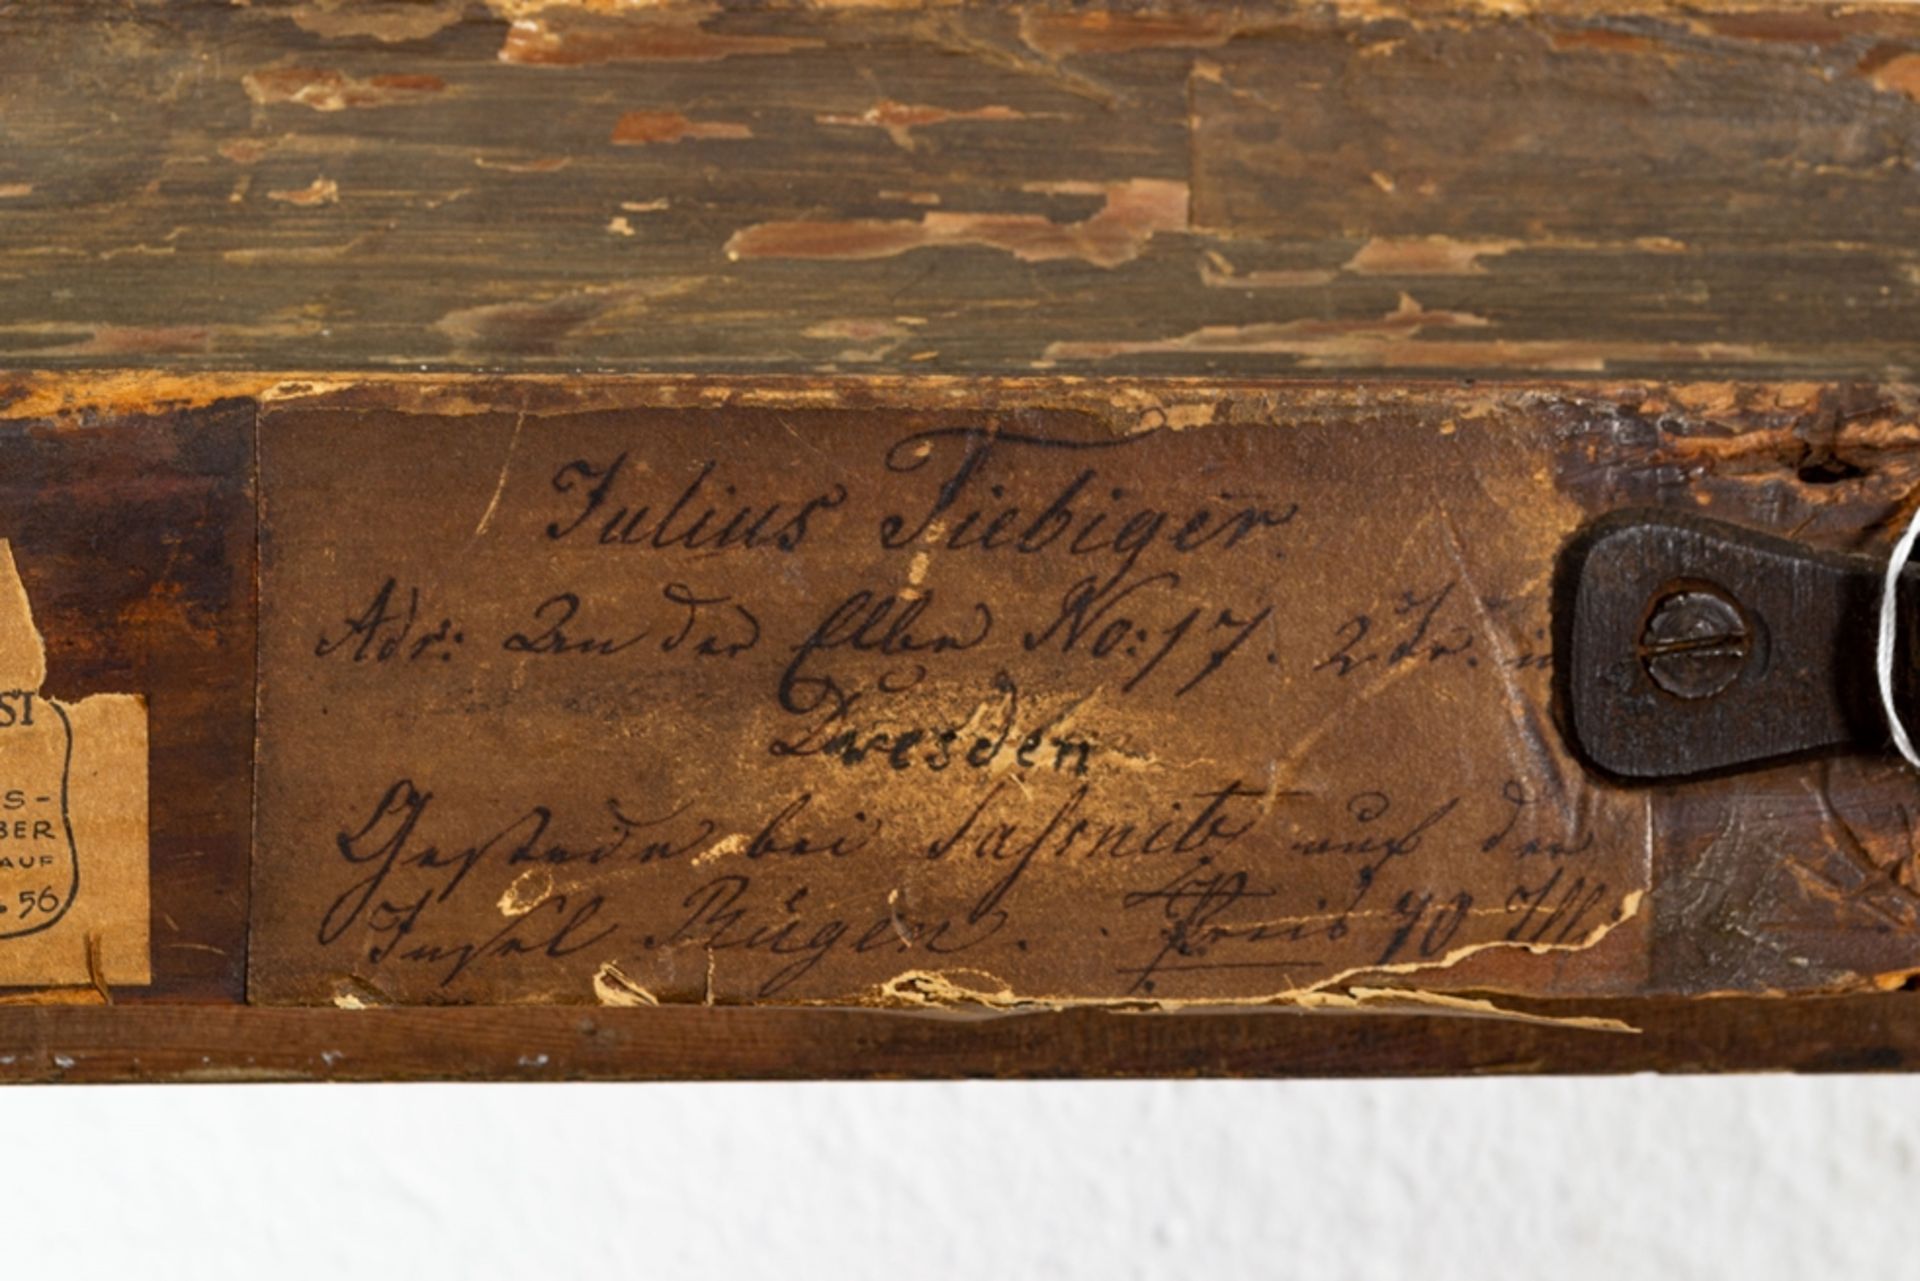 Julius Fiebiger.
Adr: An der Elbe No: 17. 2 Tr. in
Dresden
Gestade bei Saßnitz auf der
Insel Rügen. Preis 70 Thl.
ST
S-
BER
AUF
56